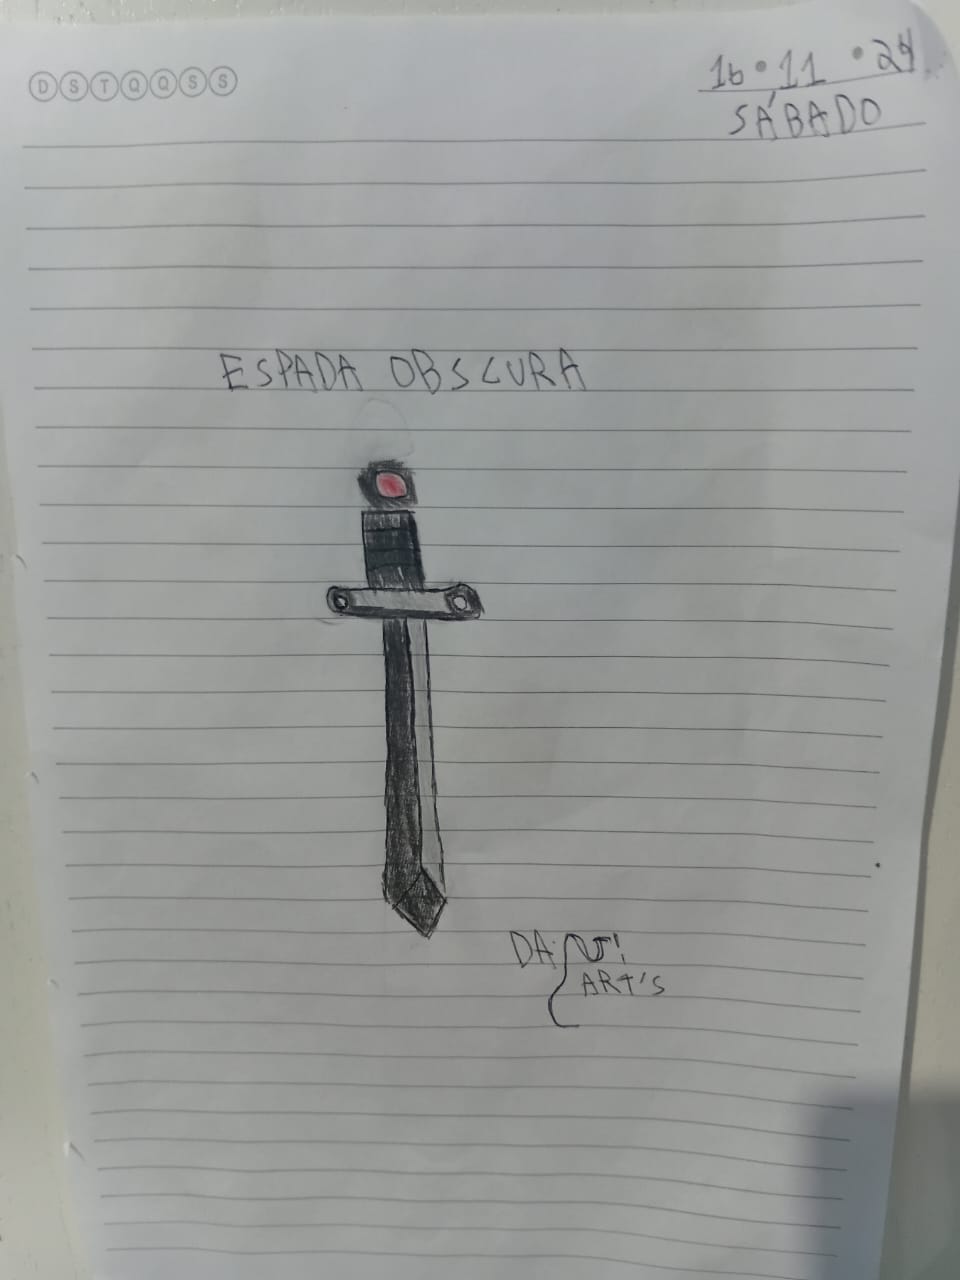 D S T Q Q S S
16 • 11 • 24
SÁBADO
ESPADA OBSCURA
ART'S